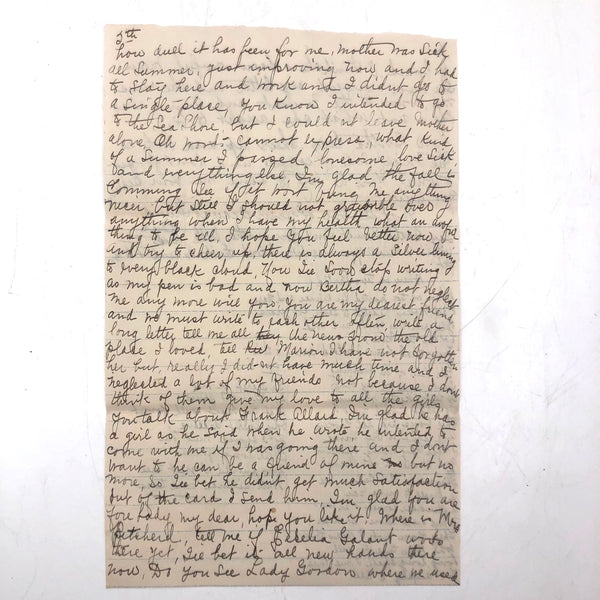 5th
how duel it has been for me, Mother was Sick
all Summer, just improving now and I had
to stay here and work and I didnt go to
a single place, You know I intended to go
to the Sea Shore, but I could nt leave Mother
alone, Oh words cannot express, what kind
of a Summer I passed, lonesome, love Sick,
and everything else, I'm glad the fall is
Comming See if it wont bring me anything
nicer, but Still I should not grumble over
anything when I have my health what an awful
thing to be ill, I hope you feel better now
and try to cheer up, there is always a Silver lining
to every black cloud, Now I'le Soon stop writing
as my pen is bad and now Bertha do not neglect
me any more will you. You are my dearest friend
and we must write to each other often, write a
long letter tell me all the news from the old
place I loved, tell Marion I have not forgotten
her but, really I did nt have much time and I
neglected a lot of my friends not because I dont
think of them give my love to all the girls
You talk about Frank Allard, I'm glad he has
a girl as he Said when he wrote he intended to
come with me if I was going there and I dont
want to he can be a friend of mine but no
more, So I'le bet he didnt get much Satisfaction
out of the card I send him, I'm glad you are
fore Lady my dear, hope you like it. Where is Mrs
tell me if Galant works
there yet, I'le bet it all new hands there
now, Do You See Lady Gordon where we used